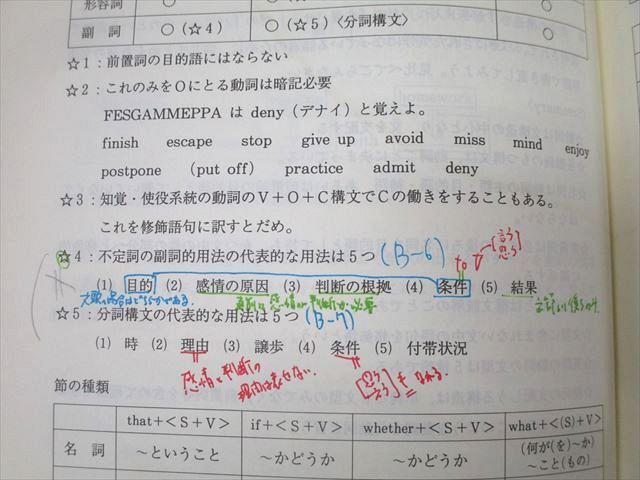 形容詞 ○(☆4) ○(☆5)〈分詞構文〉 ○
副詞
☆1：前置詞の目的語にはならない
☆2：これのみをOにとる動詞は暗記必要
FESGAMMEPPA は deny（デナイ）と覚えよ。
finish escape stop give up avoid miss mind enjoy
postpone (put off) practice admit deny
☆3：知覚・使役系統の動詞のV＋O＋C構文でCの働きをすることもある。
これを修飾語句に訳すとだめ。
☆4：不定詞の副詞的用法の代表的な用法は5つ (B-6) to V 言う 思う
(1) 目的 (2) 感情の原因 (3) 判断の根拠 (4) 条件 (5) 結果
☆5：分詞構文の代表的な用法は5つ (B-7)
(1) 時 (2) 理由 (3) 譲歩 (4) 条件 (5) 付帯状況
感情と判断の
理由は表せない。
節の種類
that＋＜S＋V＞ if＋＜S＋V＞ whether＋＜S＋V＞ what＋＜(S)＋V＞
名詞 ～ということ ～かどうか ～かどうか (何が(を)～か)
～こと(もの)